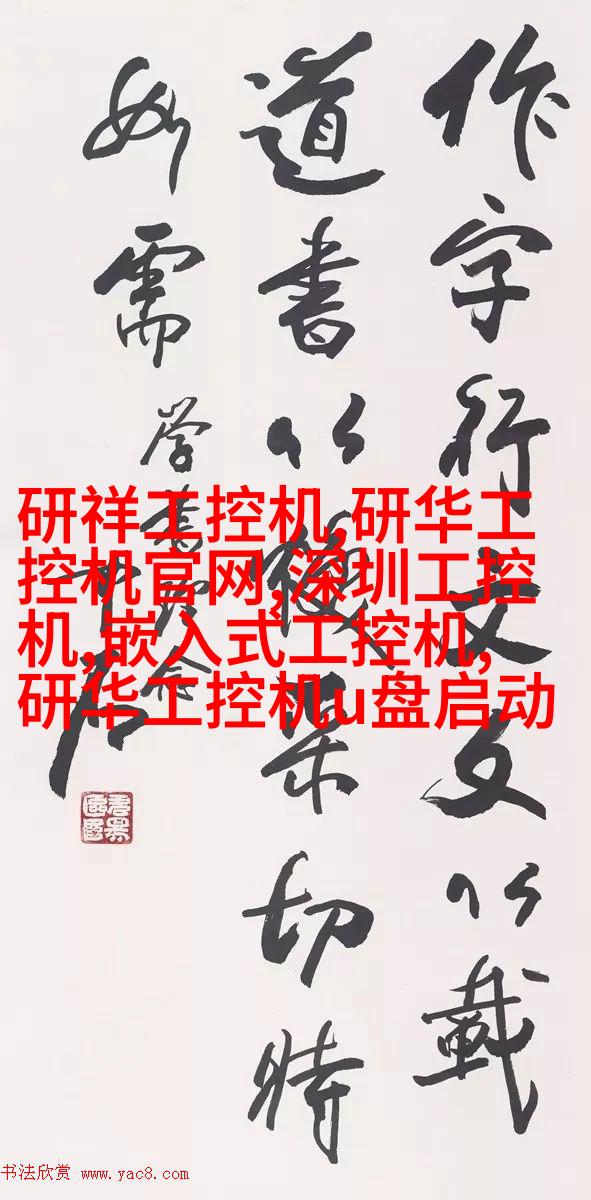 作字行文文以載
道書以采切時
如需
研祥工控机,研华工
控机官网,深圳工控
机,嵌入式工控机,
研华工控机u盘启动
书法欣赏 www.yac8.com